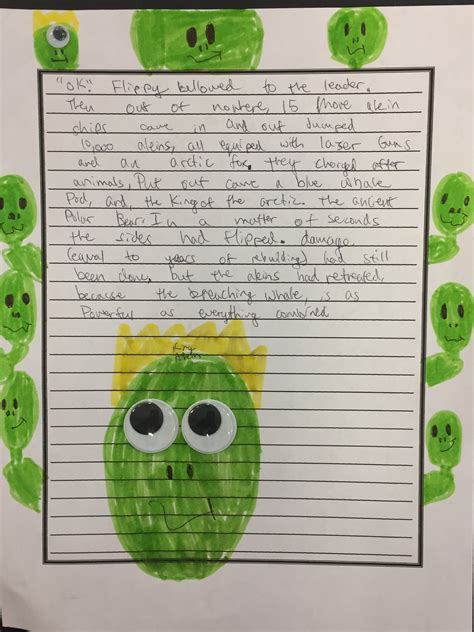 "ok." Flippy bellowed to the leader.
Then out of nowhere, 15 more alein
ships came in and out Jumped
10,000 aleins, all equiped with lazer Guns
and an arctic fox, they charged after
animals, Put out came a blue whale
Pod, and, the King of the arctic. The ancient
Polar Bear. In a matter of seconds
the sides had flipped. damage
(equal to years of rebuilding) had still
been done, but the aleins had retreated,
because the breaching whale, is as
Powerful as everything combined
King